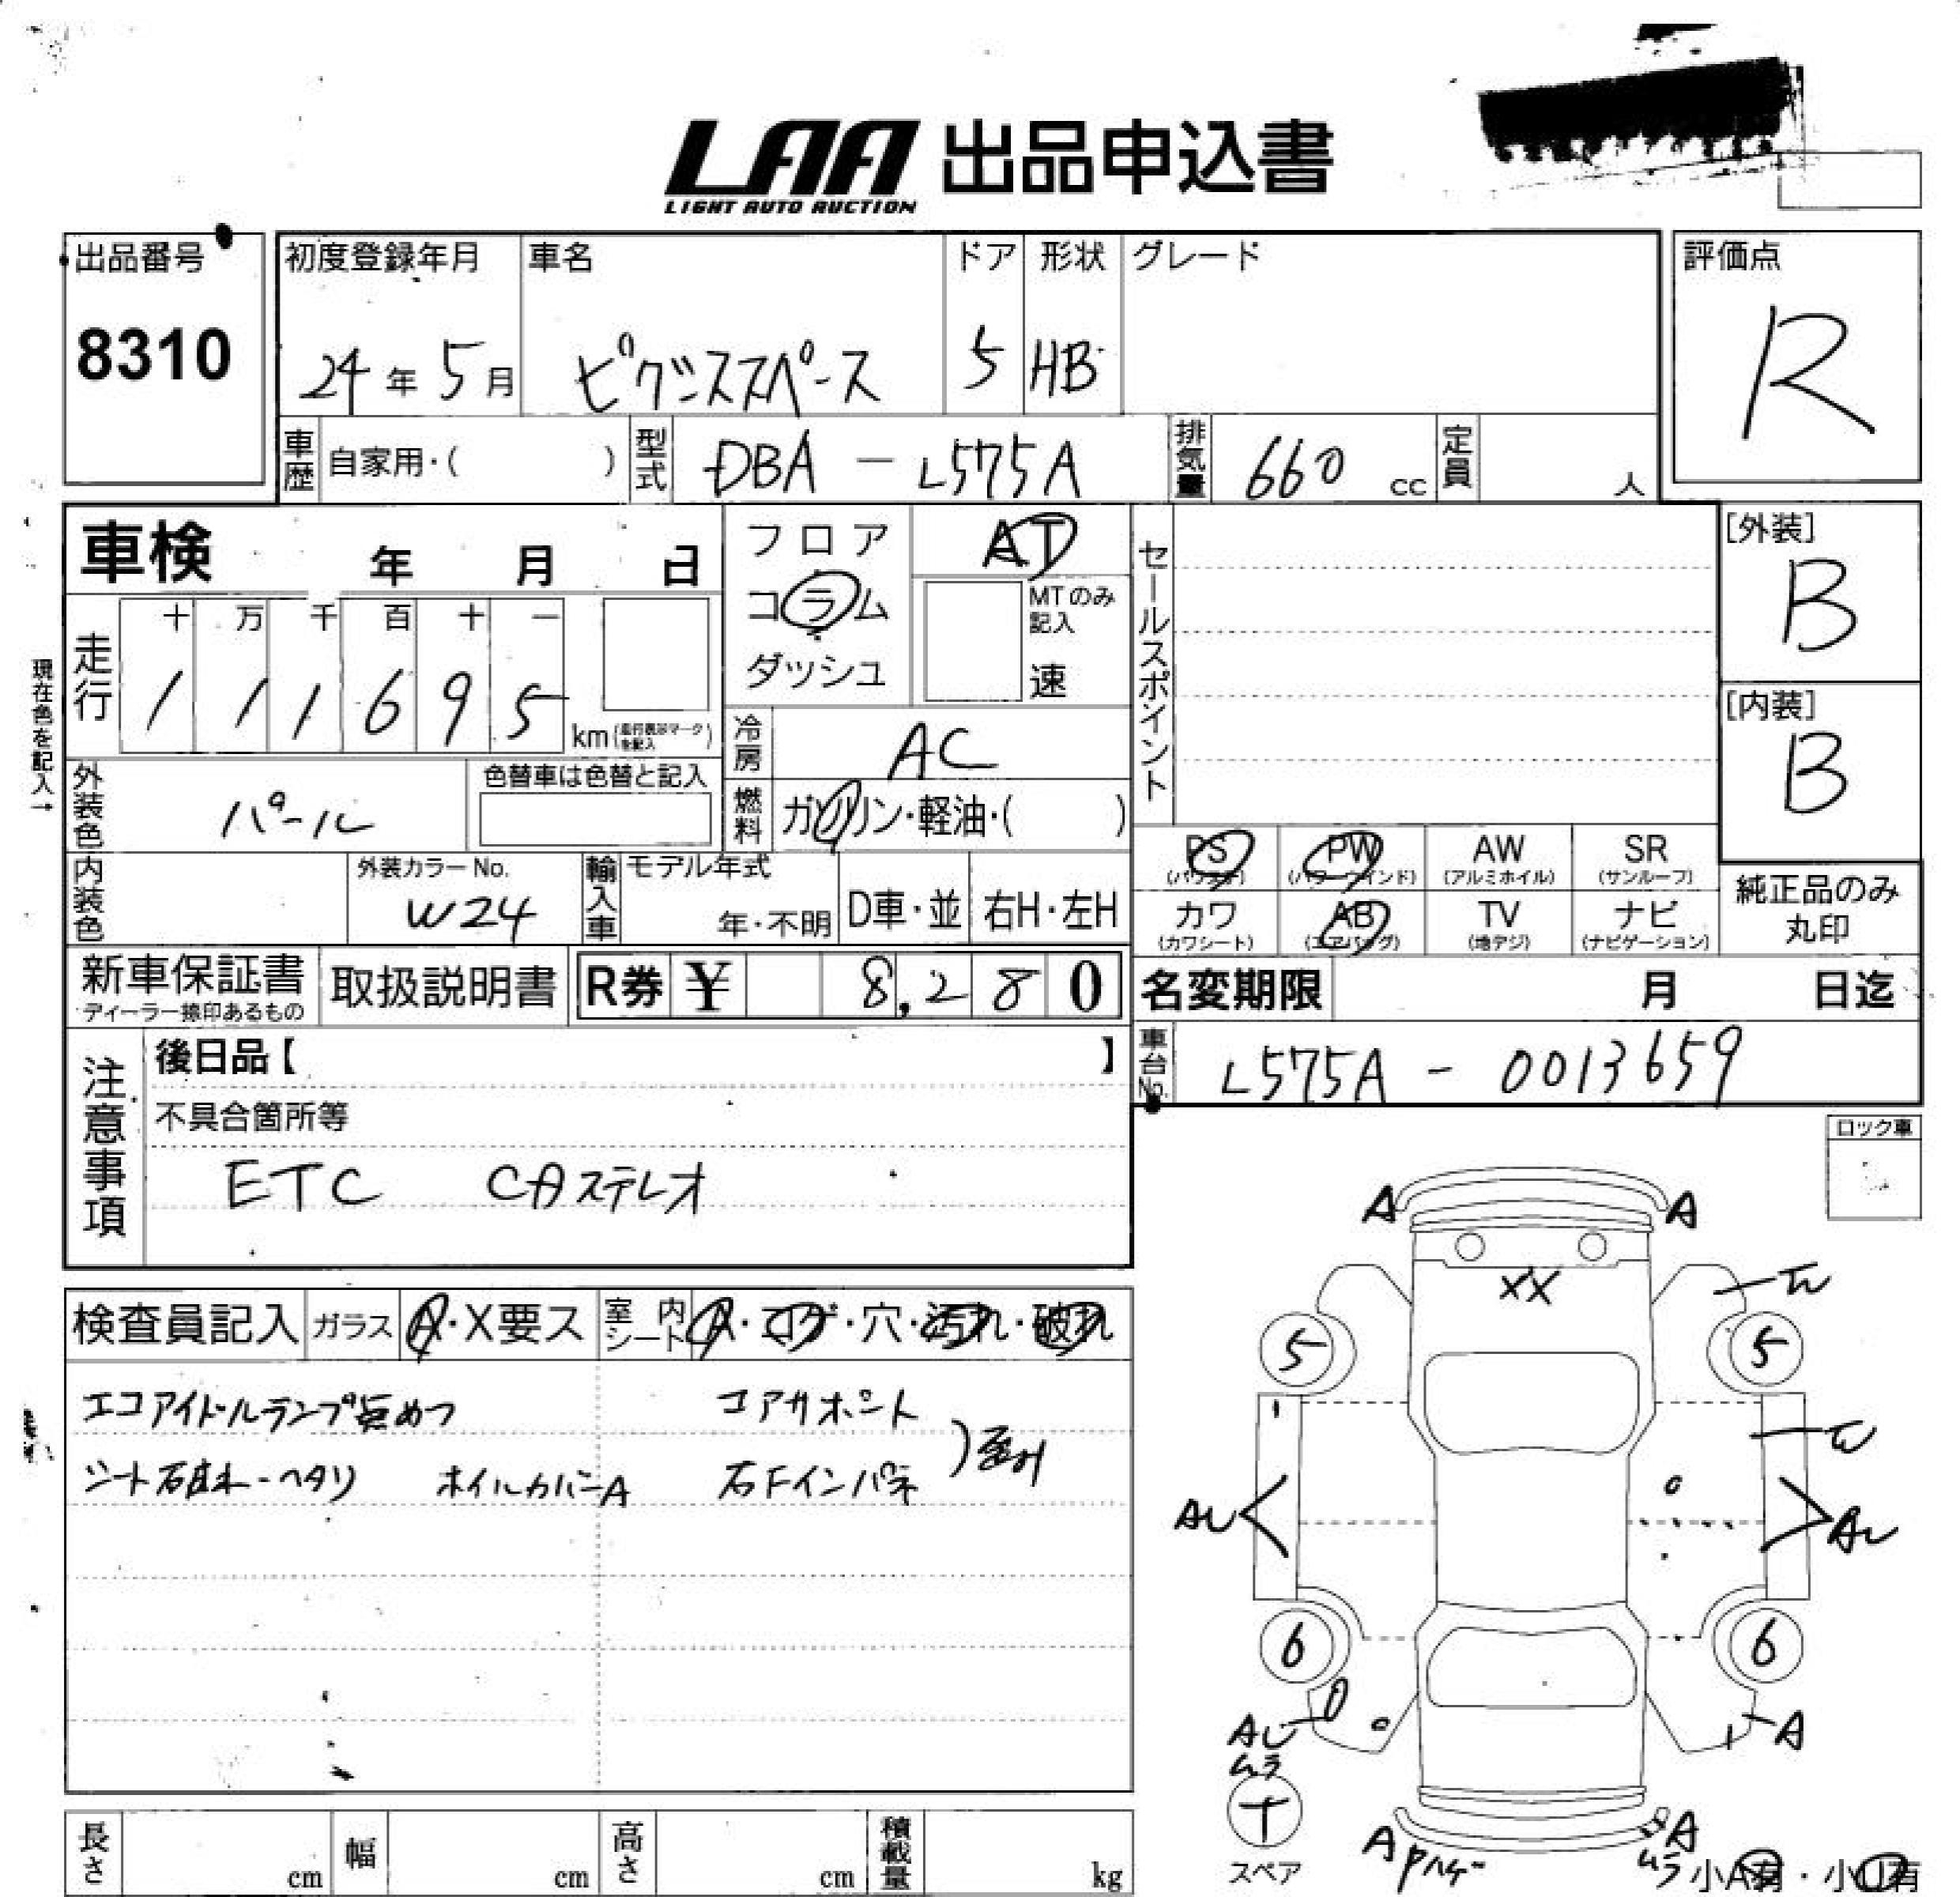 LAA 出品申込書
LIGHT AUTO AUCTION
出品番号
8310
初度登録年月 車名 ドア 形状 グレード
24年 5月 ピクシススペース 5 HB
評価点
R
車歴 自家用・( ) 型式 DBA - L575A 排気量 660 cc 定員 人
車検 年 月 日
フロア
コラム
ダッシュ
AT
MTのみ記入
速
セールスポイント
[外装]
B
[内装]
B
現在色を記入→
走行 十 万 千 百 十 一
1 1 1 6 9 5 km
冷房 AC
外装色 パール 色替車は色替と記入
燃料 ガソリン・軽油・( )
内装色 外装カラーNo. W24
輸入車 モデル年式 年・不明 D車・並 右H・左H
PS (パワステ) PW (パワーウインド) AW (アルミホイル) SR (サンルーフ)
カワ (カワシート) AB (エアバッグ) TV (地デジ) ナビ (ナビゲーション)
純正品のみ
丸印
新車保証書
ディーラー捺印あるもの
取扱説明書
R券 ¥ 8,280
名変期限 月 日迄
注意事項
後日品【 】
車台No. L575A - 0013659
不具合箇所等
ETC
ロック車
検査員記入 ガラス A・X要ス 室内シート A・コゲ・穴・汚れ・破れ
エコアイドルランプ点めつ コアサポート
ホイルカバーA
A A
XX
5 5
AU AU
6 6
AU
ムラ
A
スペア
A Pハゲ
A
ムラ
小A有・小U有
長さ cm 幅 cm 高さ cm 積載量 kg